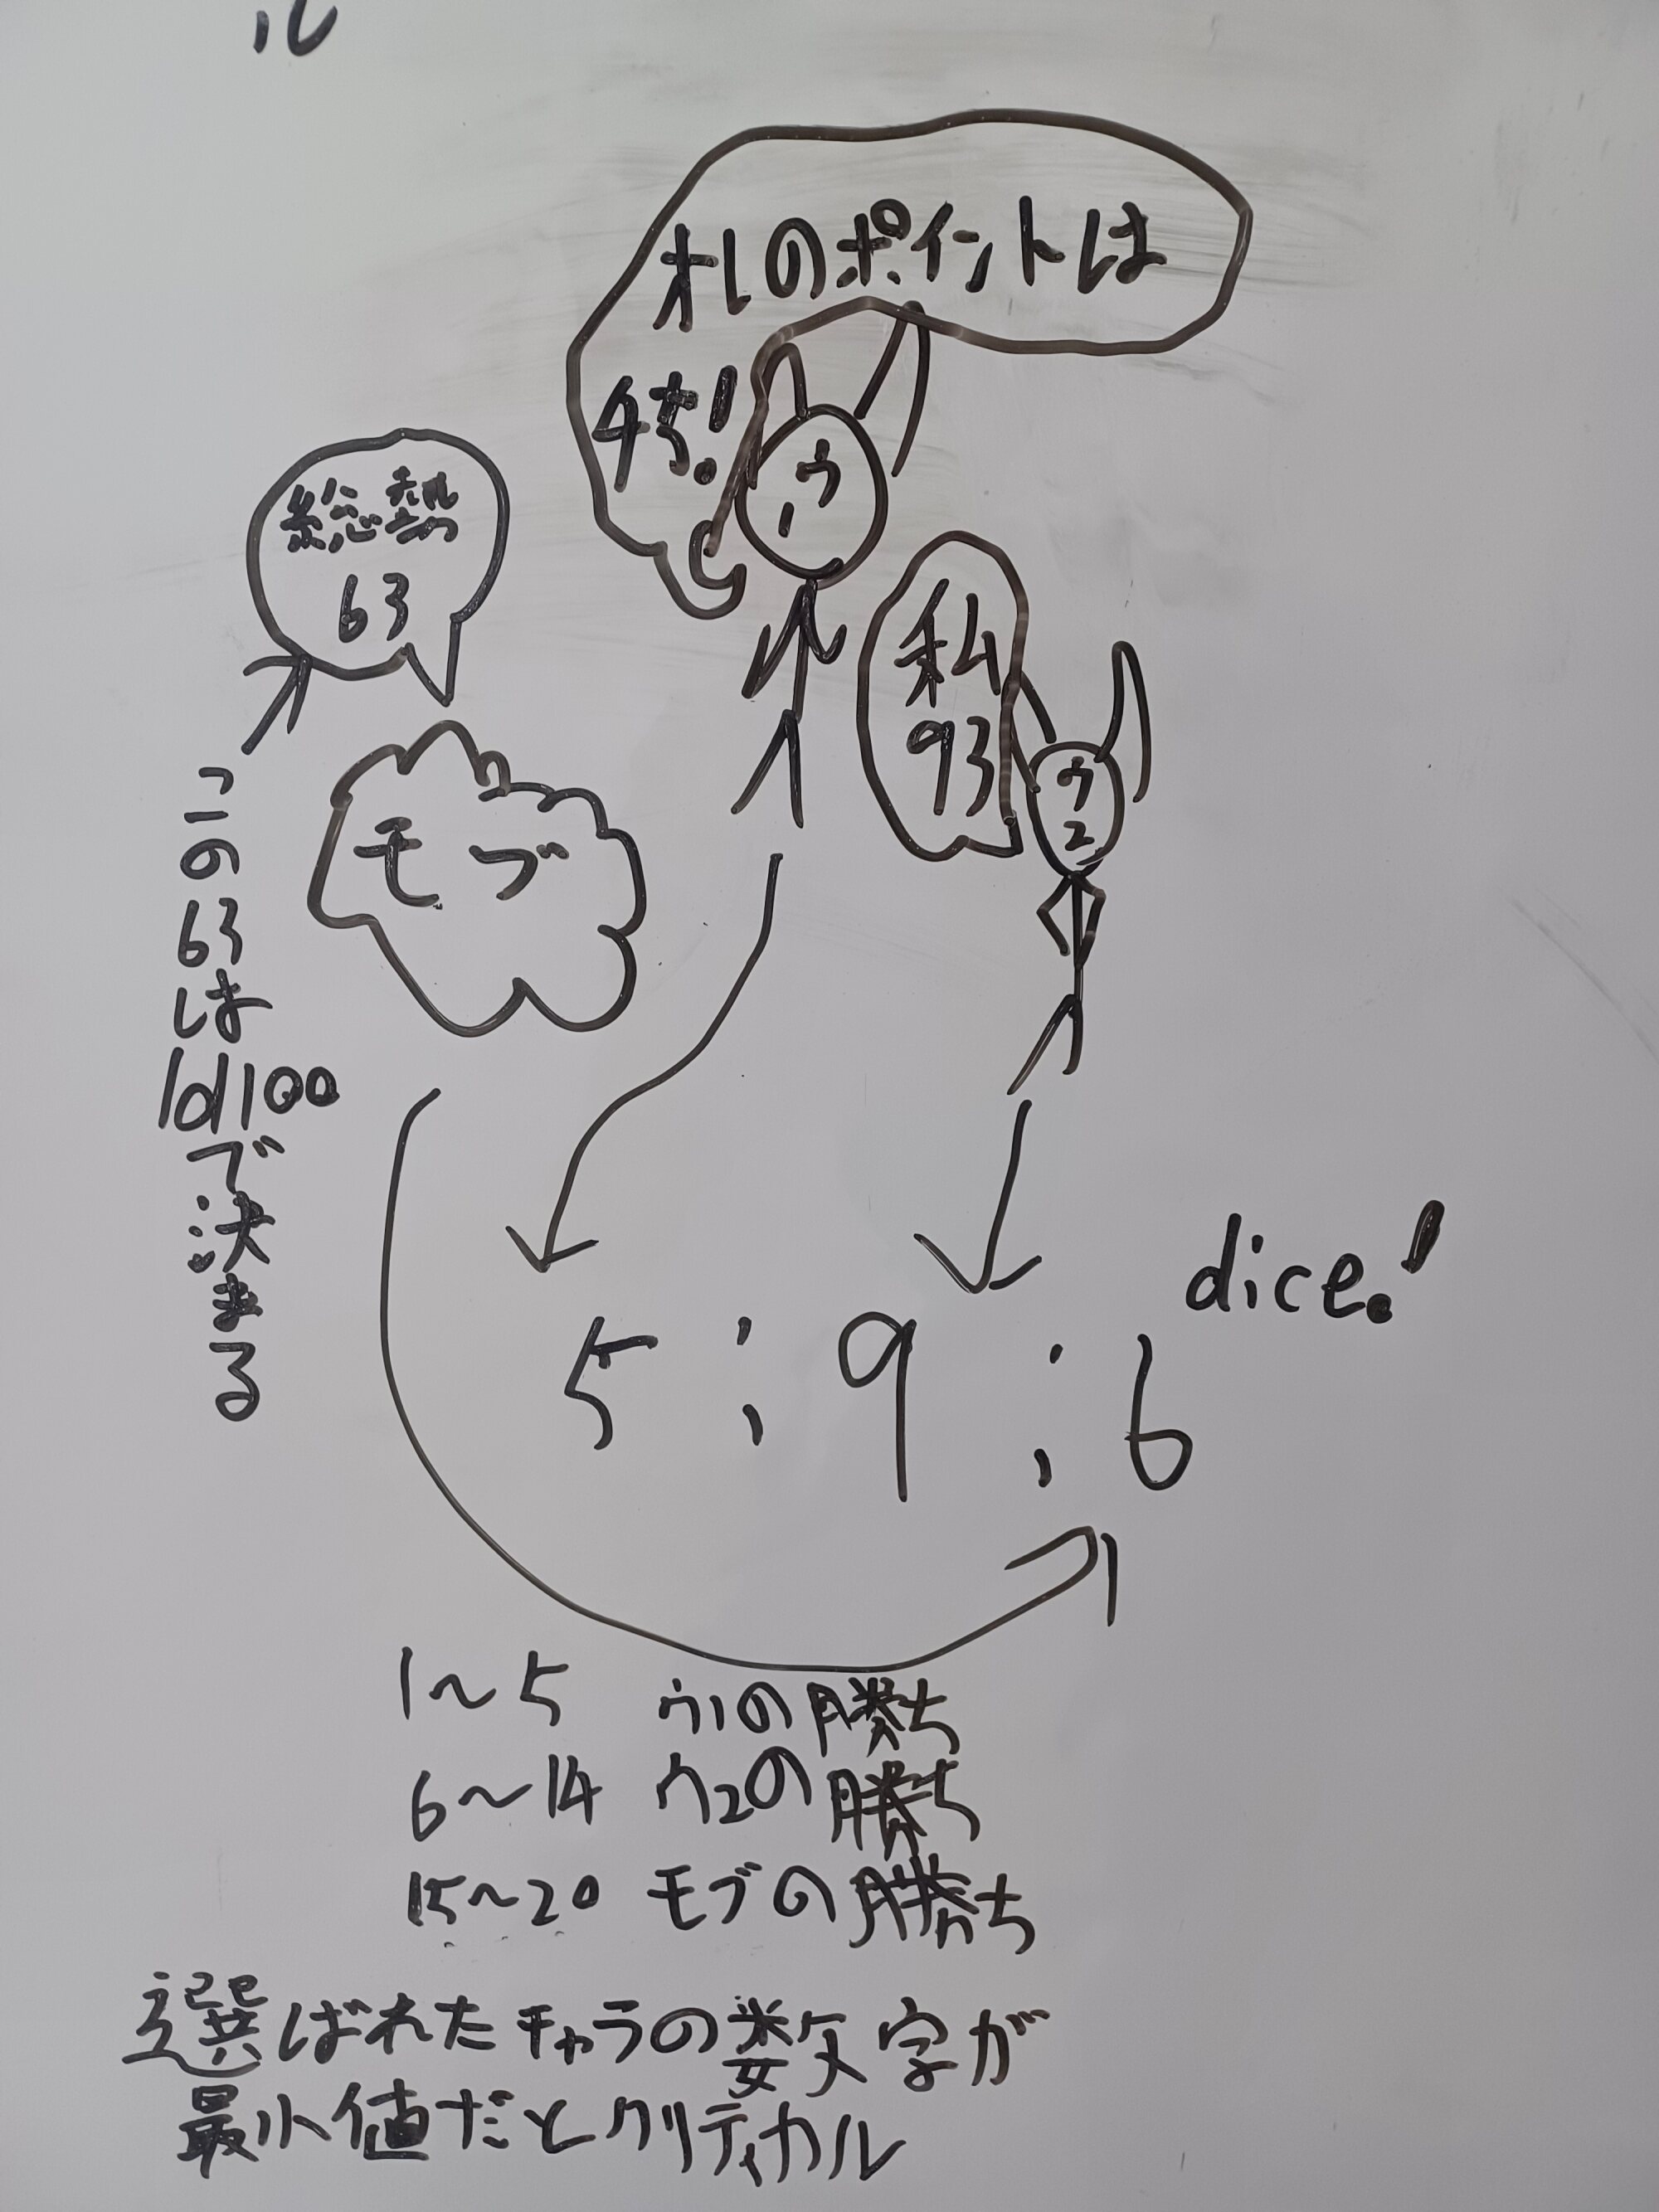 オレのポイントは
45!
ウ
1
総熱
63
私
93
ウ
2
モブ
この63は1d100で決まる
dice!
5:9:6
1～5 ウ1の勝ち
6～14 ウ2の勝ち
15～20 モブの勝ち
選ばれたキャラの数字が
最小値だとクリティカル